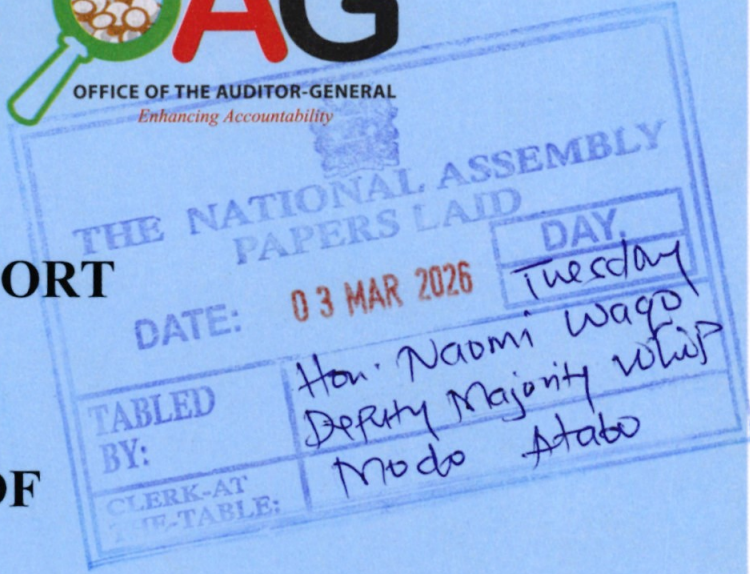 OAG
OFFICE OF THE AUDITOR-GENERAL
Enhancing Accountability
THE NATIONAL ASSEMBLY
PAPERS LAID
DAY.
Tuesday
DATE: 03 MAR 2026
ORT
TABLED BY:
Hon. Naomi Waqo
Deputy Majority Whip
OF
CLERK-AT THE-TABLE:
Modo Atabo